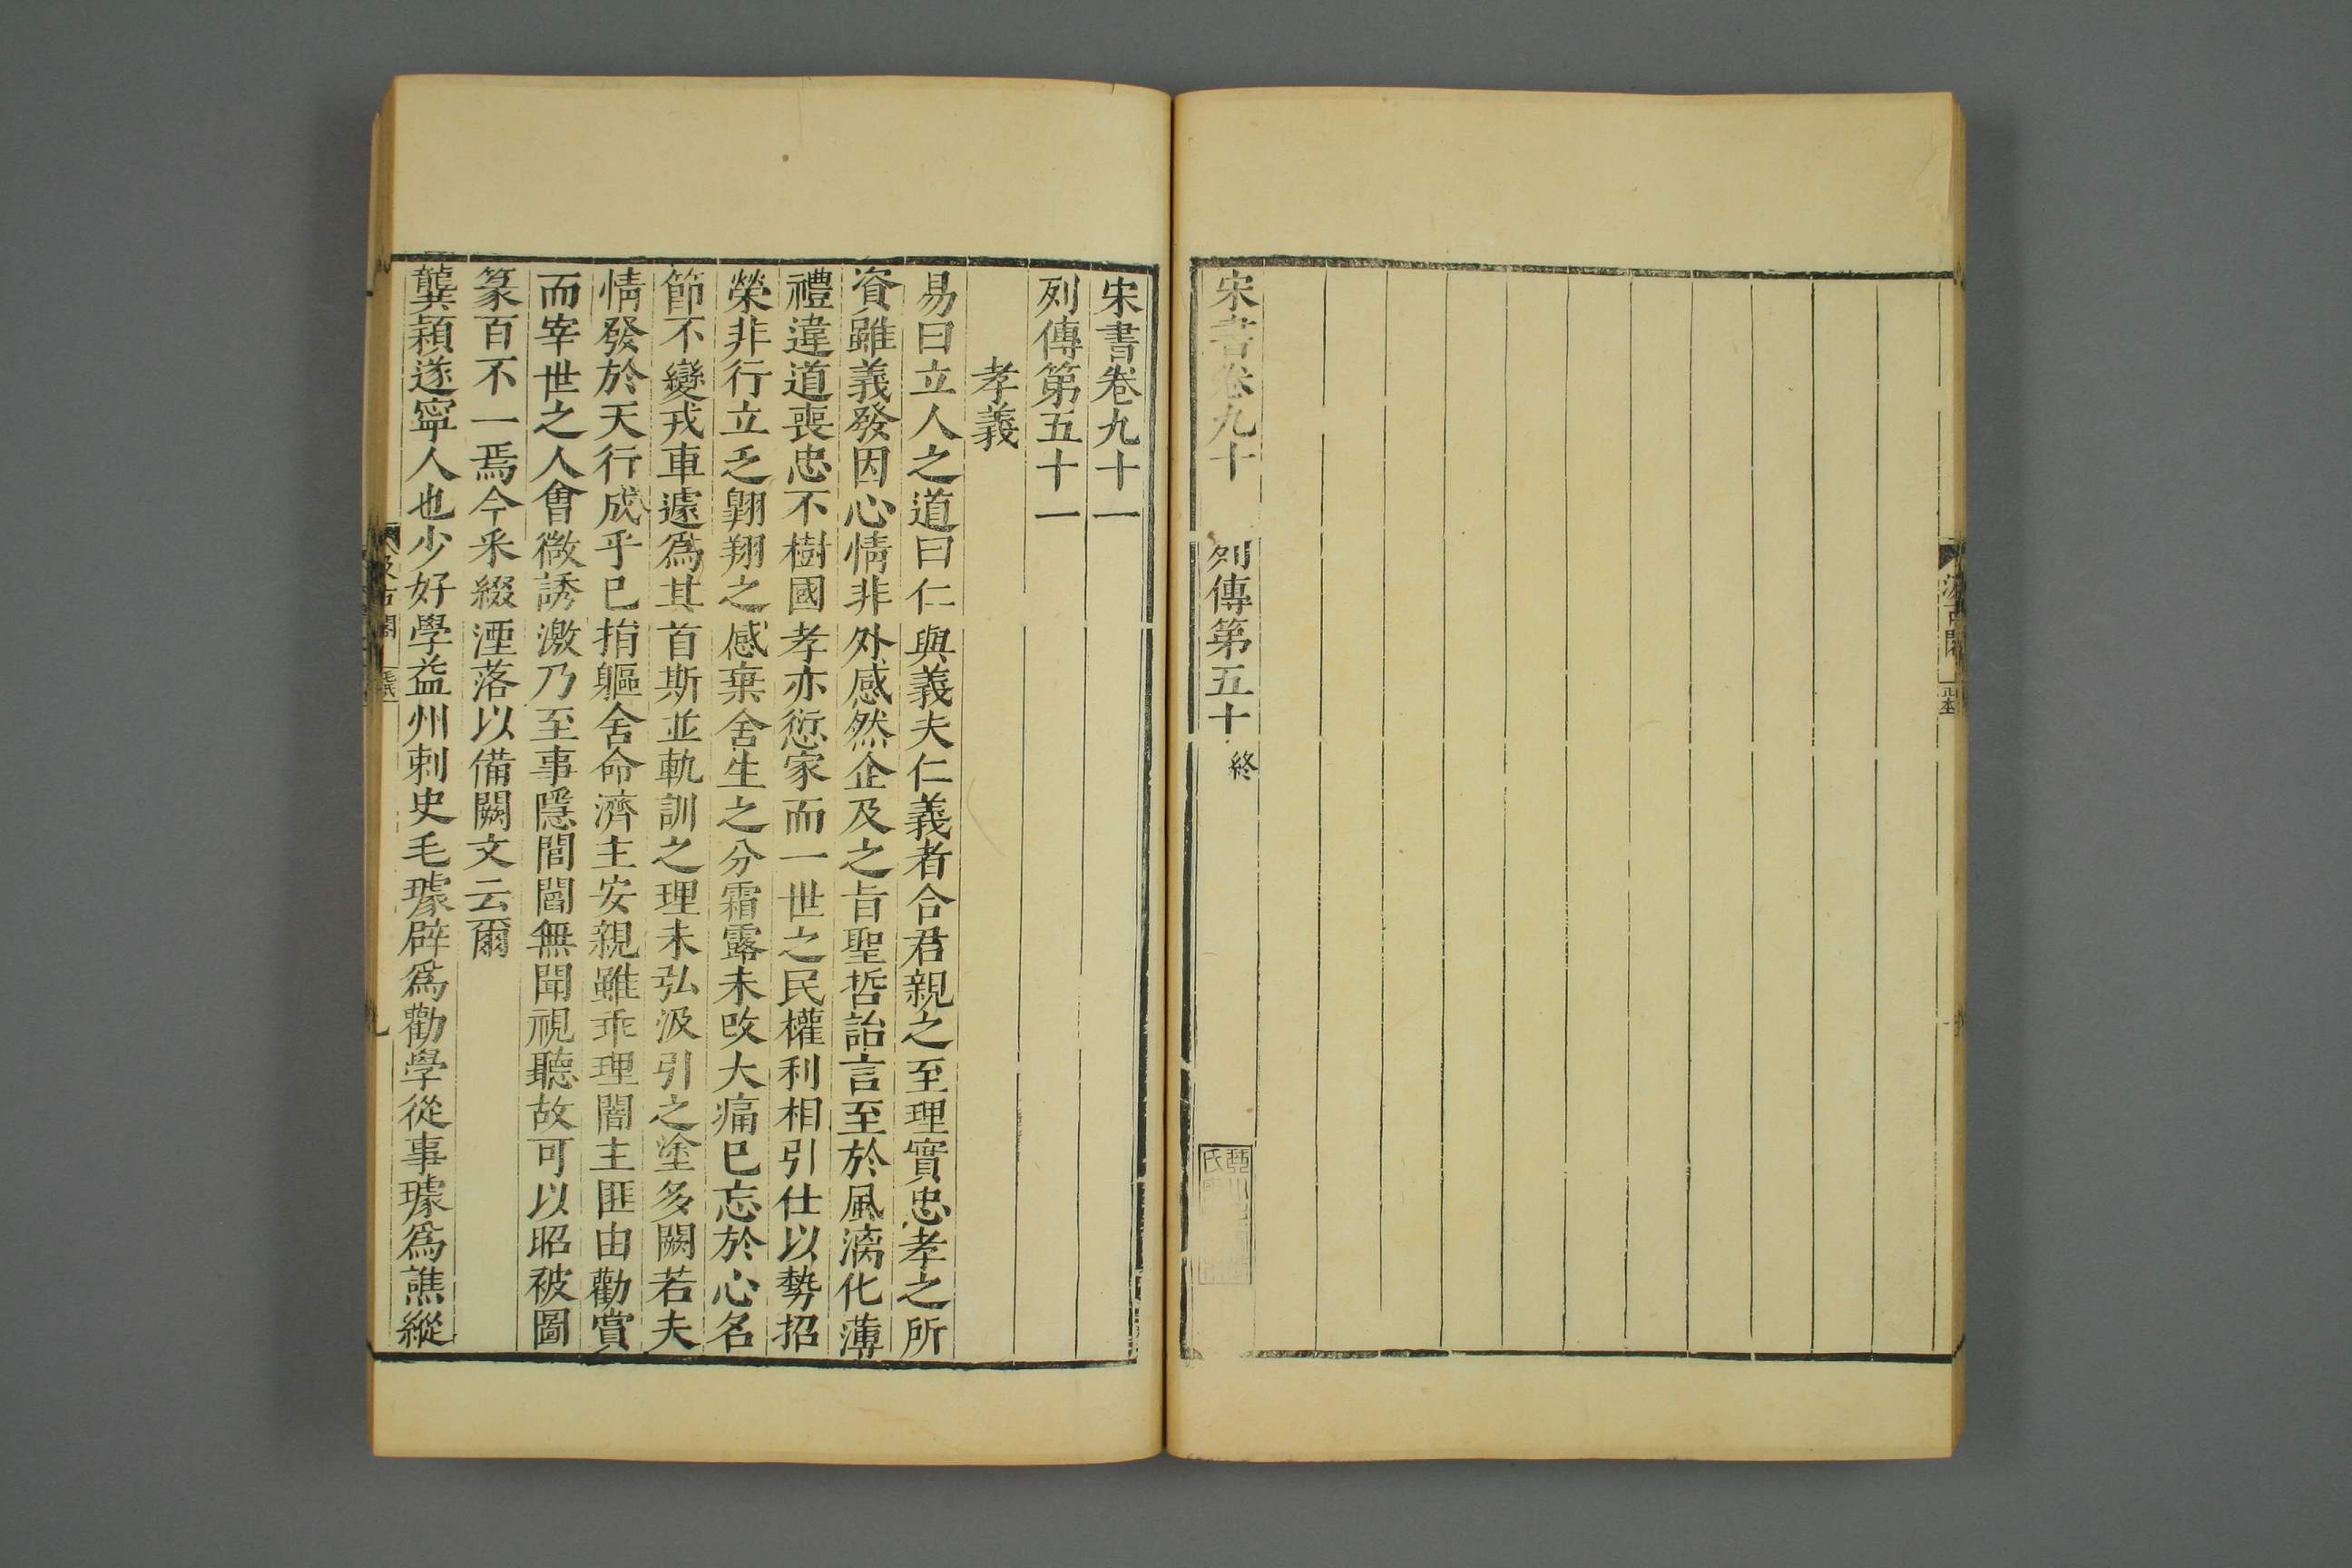 宋書卷九十　列傳第五十　終
宋書卷九十一
列傳第五十一
孝義
易曰立人之道曰仁與義夫仁義者合君親之至理實忠孝之所
資雖義發因心情非外感然企及之旨聖哲詒言至於風漓化薄
禮違道喪忠不樹國孝亦愆家而一世之民權利相引仕以勢招
榮非行立乏翺翔之感棄舍生之分霜露未改大痛已忘於心名
節不變戎車遽爲其首斯並軌訓之理未弘汲引之塗多闕若夫
情發於天行成乎已捐軀舍命濟主安親雖乖理闇主匪由勸賞
而宰世之人曾微誘激乃至事隱閭閻無聞視聽故可以昭被圖
篆百不一焉今采綴湮落以備闕文云爾
龔穎遂寧人也少好學益州刺史毛璩辟爲勸學從事璩爲譙縱